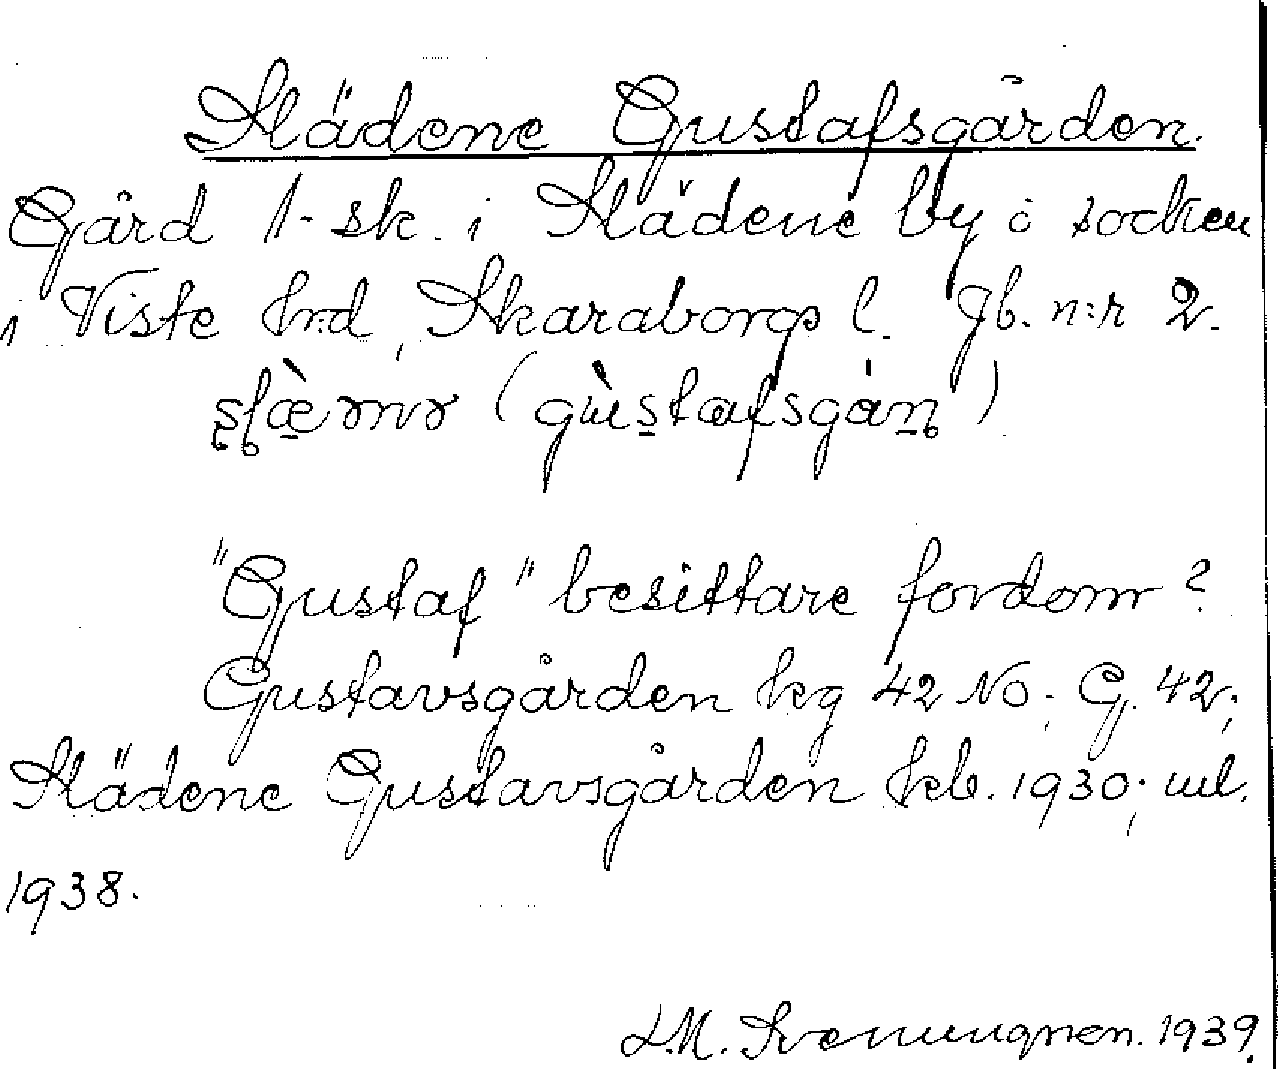 Slädene Gustafsgården.
Gård 1-sk. i Slädene by o socken
i Viste hrd, Skaraborgs l. Jb. n:r 2.
"Gustaf" besittare fordom?
Gustavsgården kg 42 No; G. 42;
Slädene Gustavsgården kb. 1930; ml.
1938.
L.M. Svenungsson. 1939.